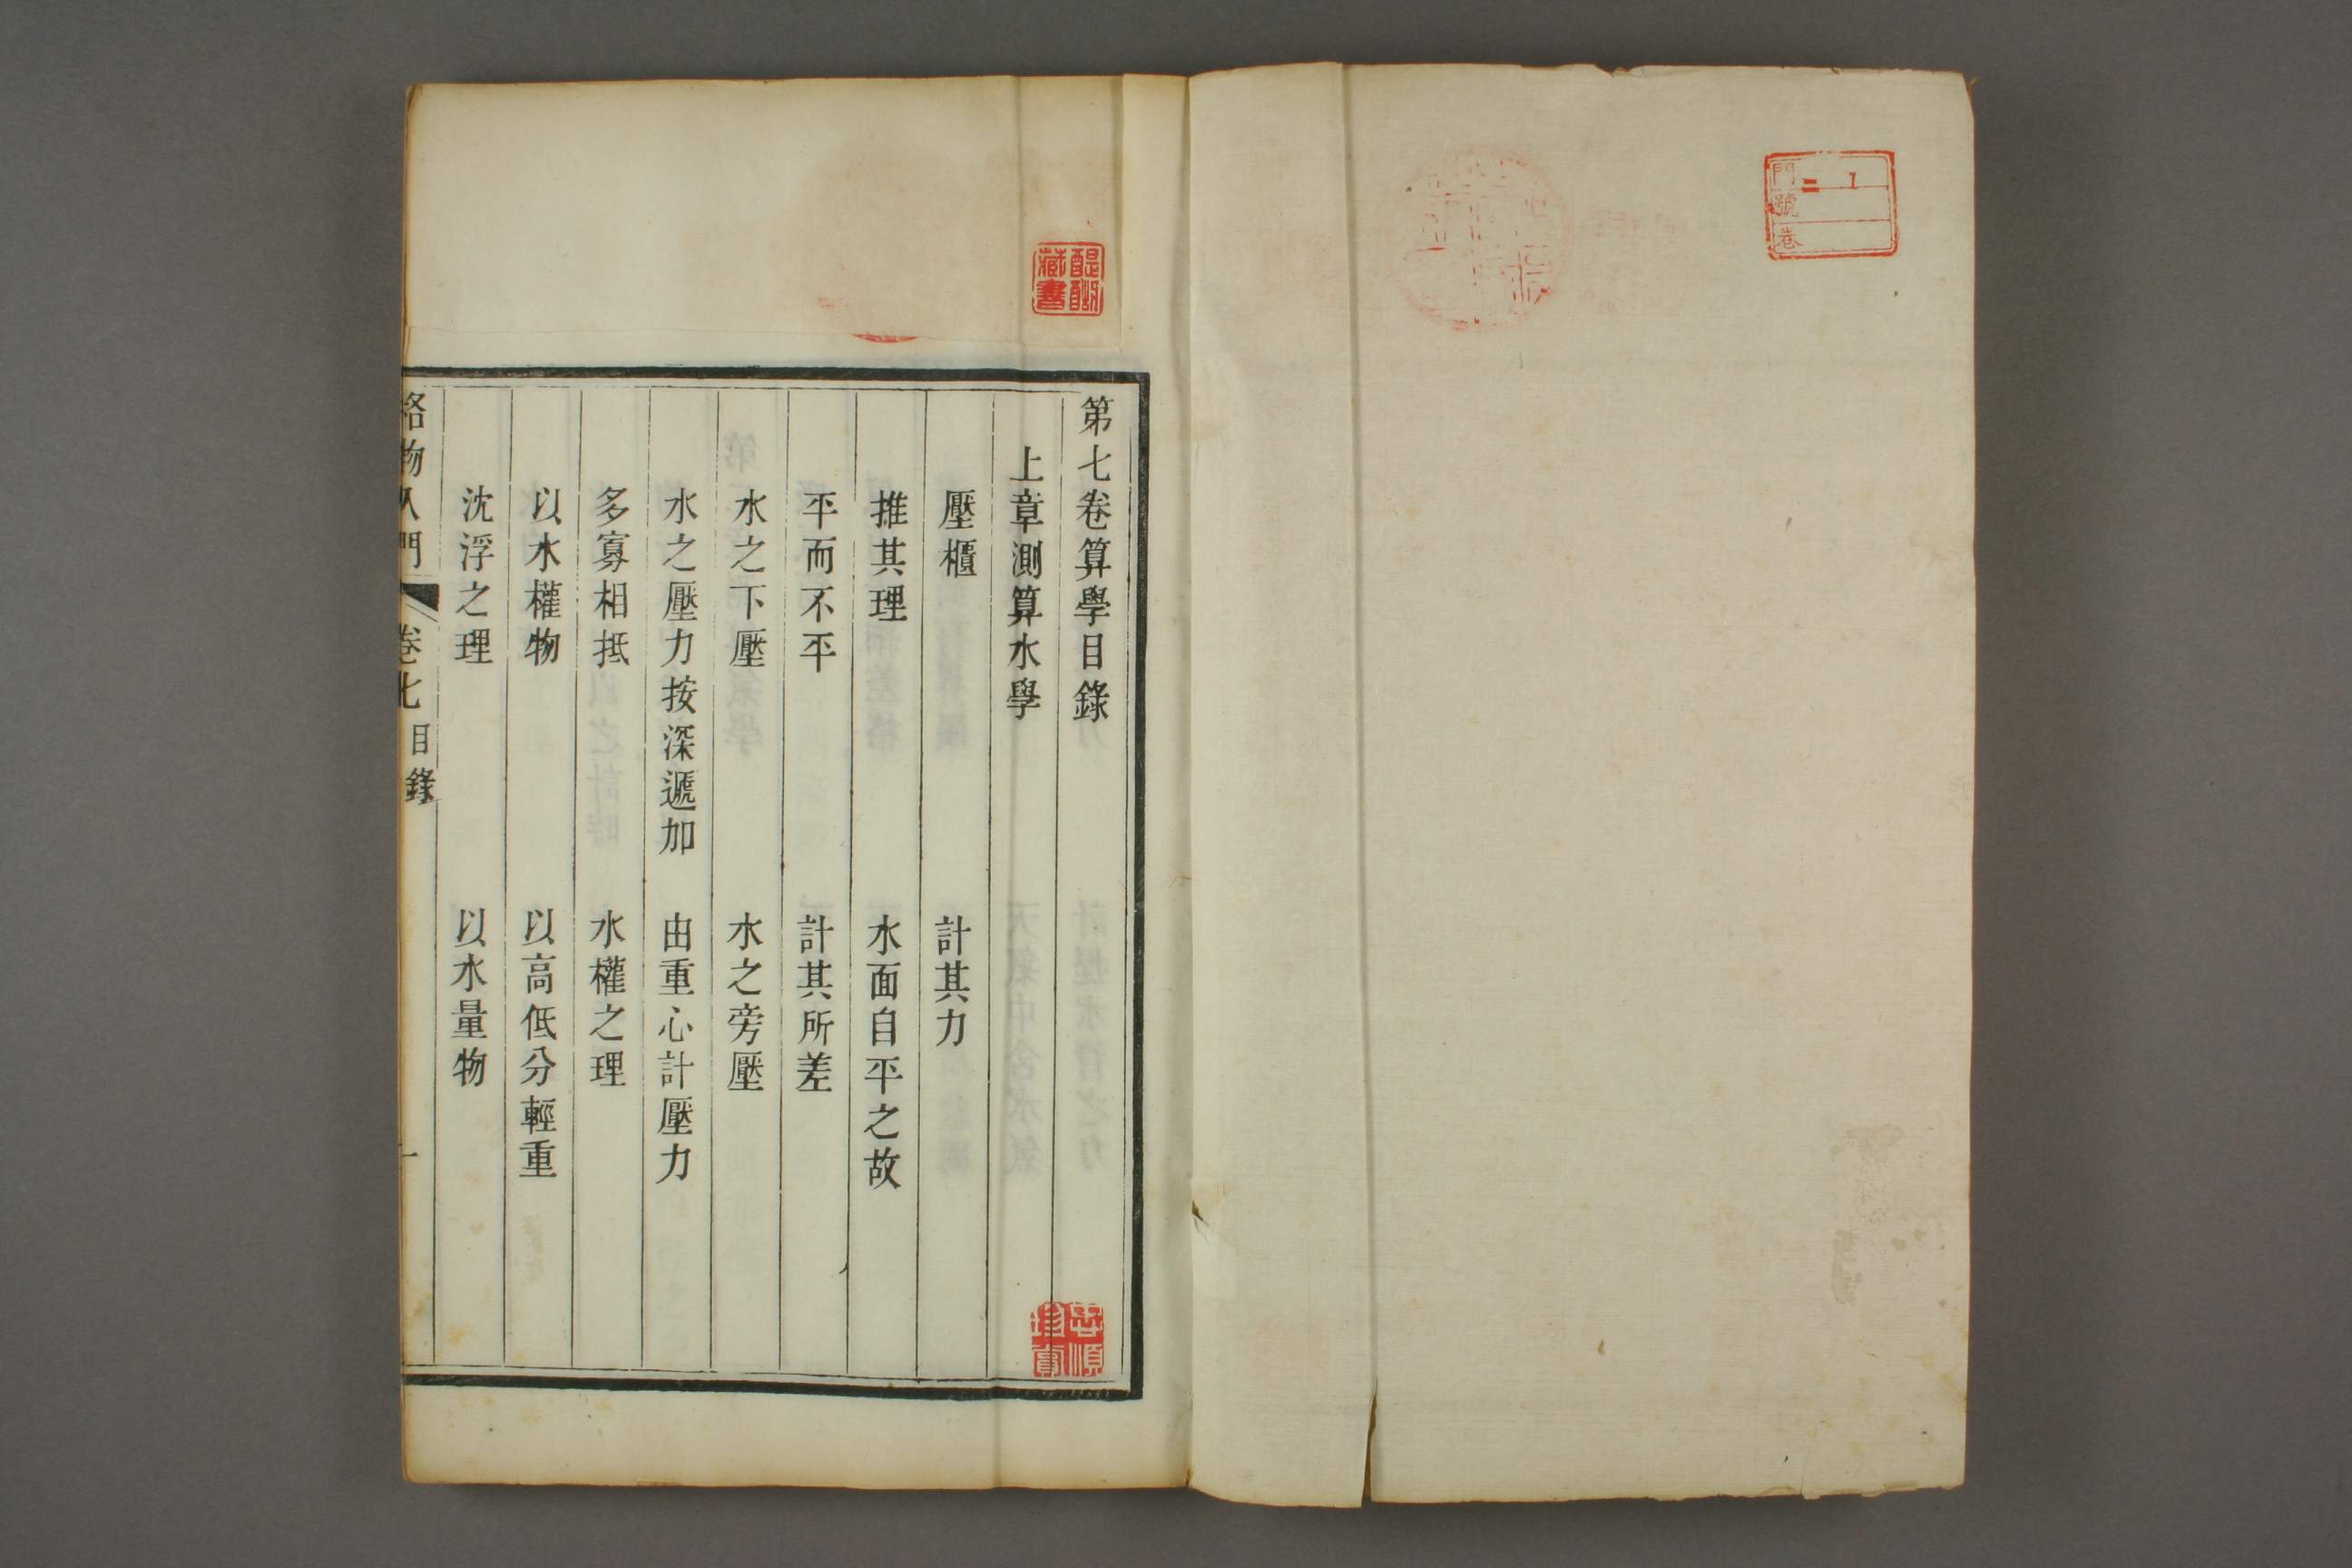 門 二 1
號
卷
醍醐
藏書
第七卷算學目錄
上章測算水學
壓櫃 計其力
推其理 水面自平之故
平而不平 計其所差
水之下壓 水之旁壓
水之壓力按深遞加 由重心計壓力
多寡相抵 水權之理
以水權物 以高低分輕重
沈浮之理 以水量物
格物入門 卷七 目錄 一
忠順
珍賞